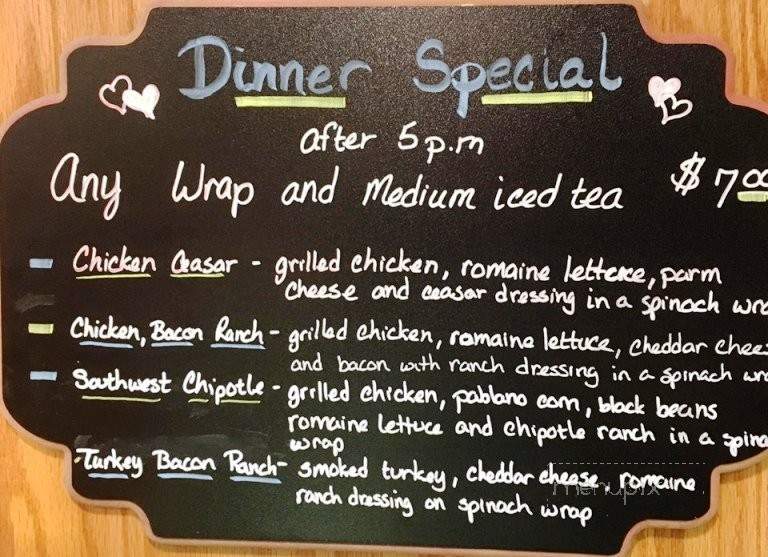 Dinner Special
after 5 p.m
Any Wrap and Medium iced tea $7.00
- Chicken Ceasar - grilled chicken, romaine lettuce, parm
cheese and ceasar dressing in a spinach wra
- Chicken, Bacon Ranch - grilled chicken, romaine lettuce, cheddar chees
and bacon with ranch dressing in a spinach wra
- Southwest Chipotle - grilled chicken, pablano corn, black beans
romaine lettuce and chipotle ranch in a spina
wrap
- Turkey Bacon Ranch - smoked turkey, cheddar cheese, romaine
ranch dressing on spinach wrap
menupix